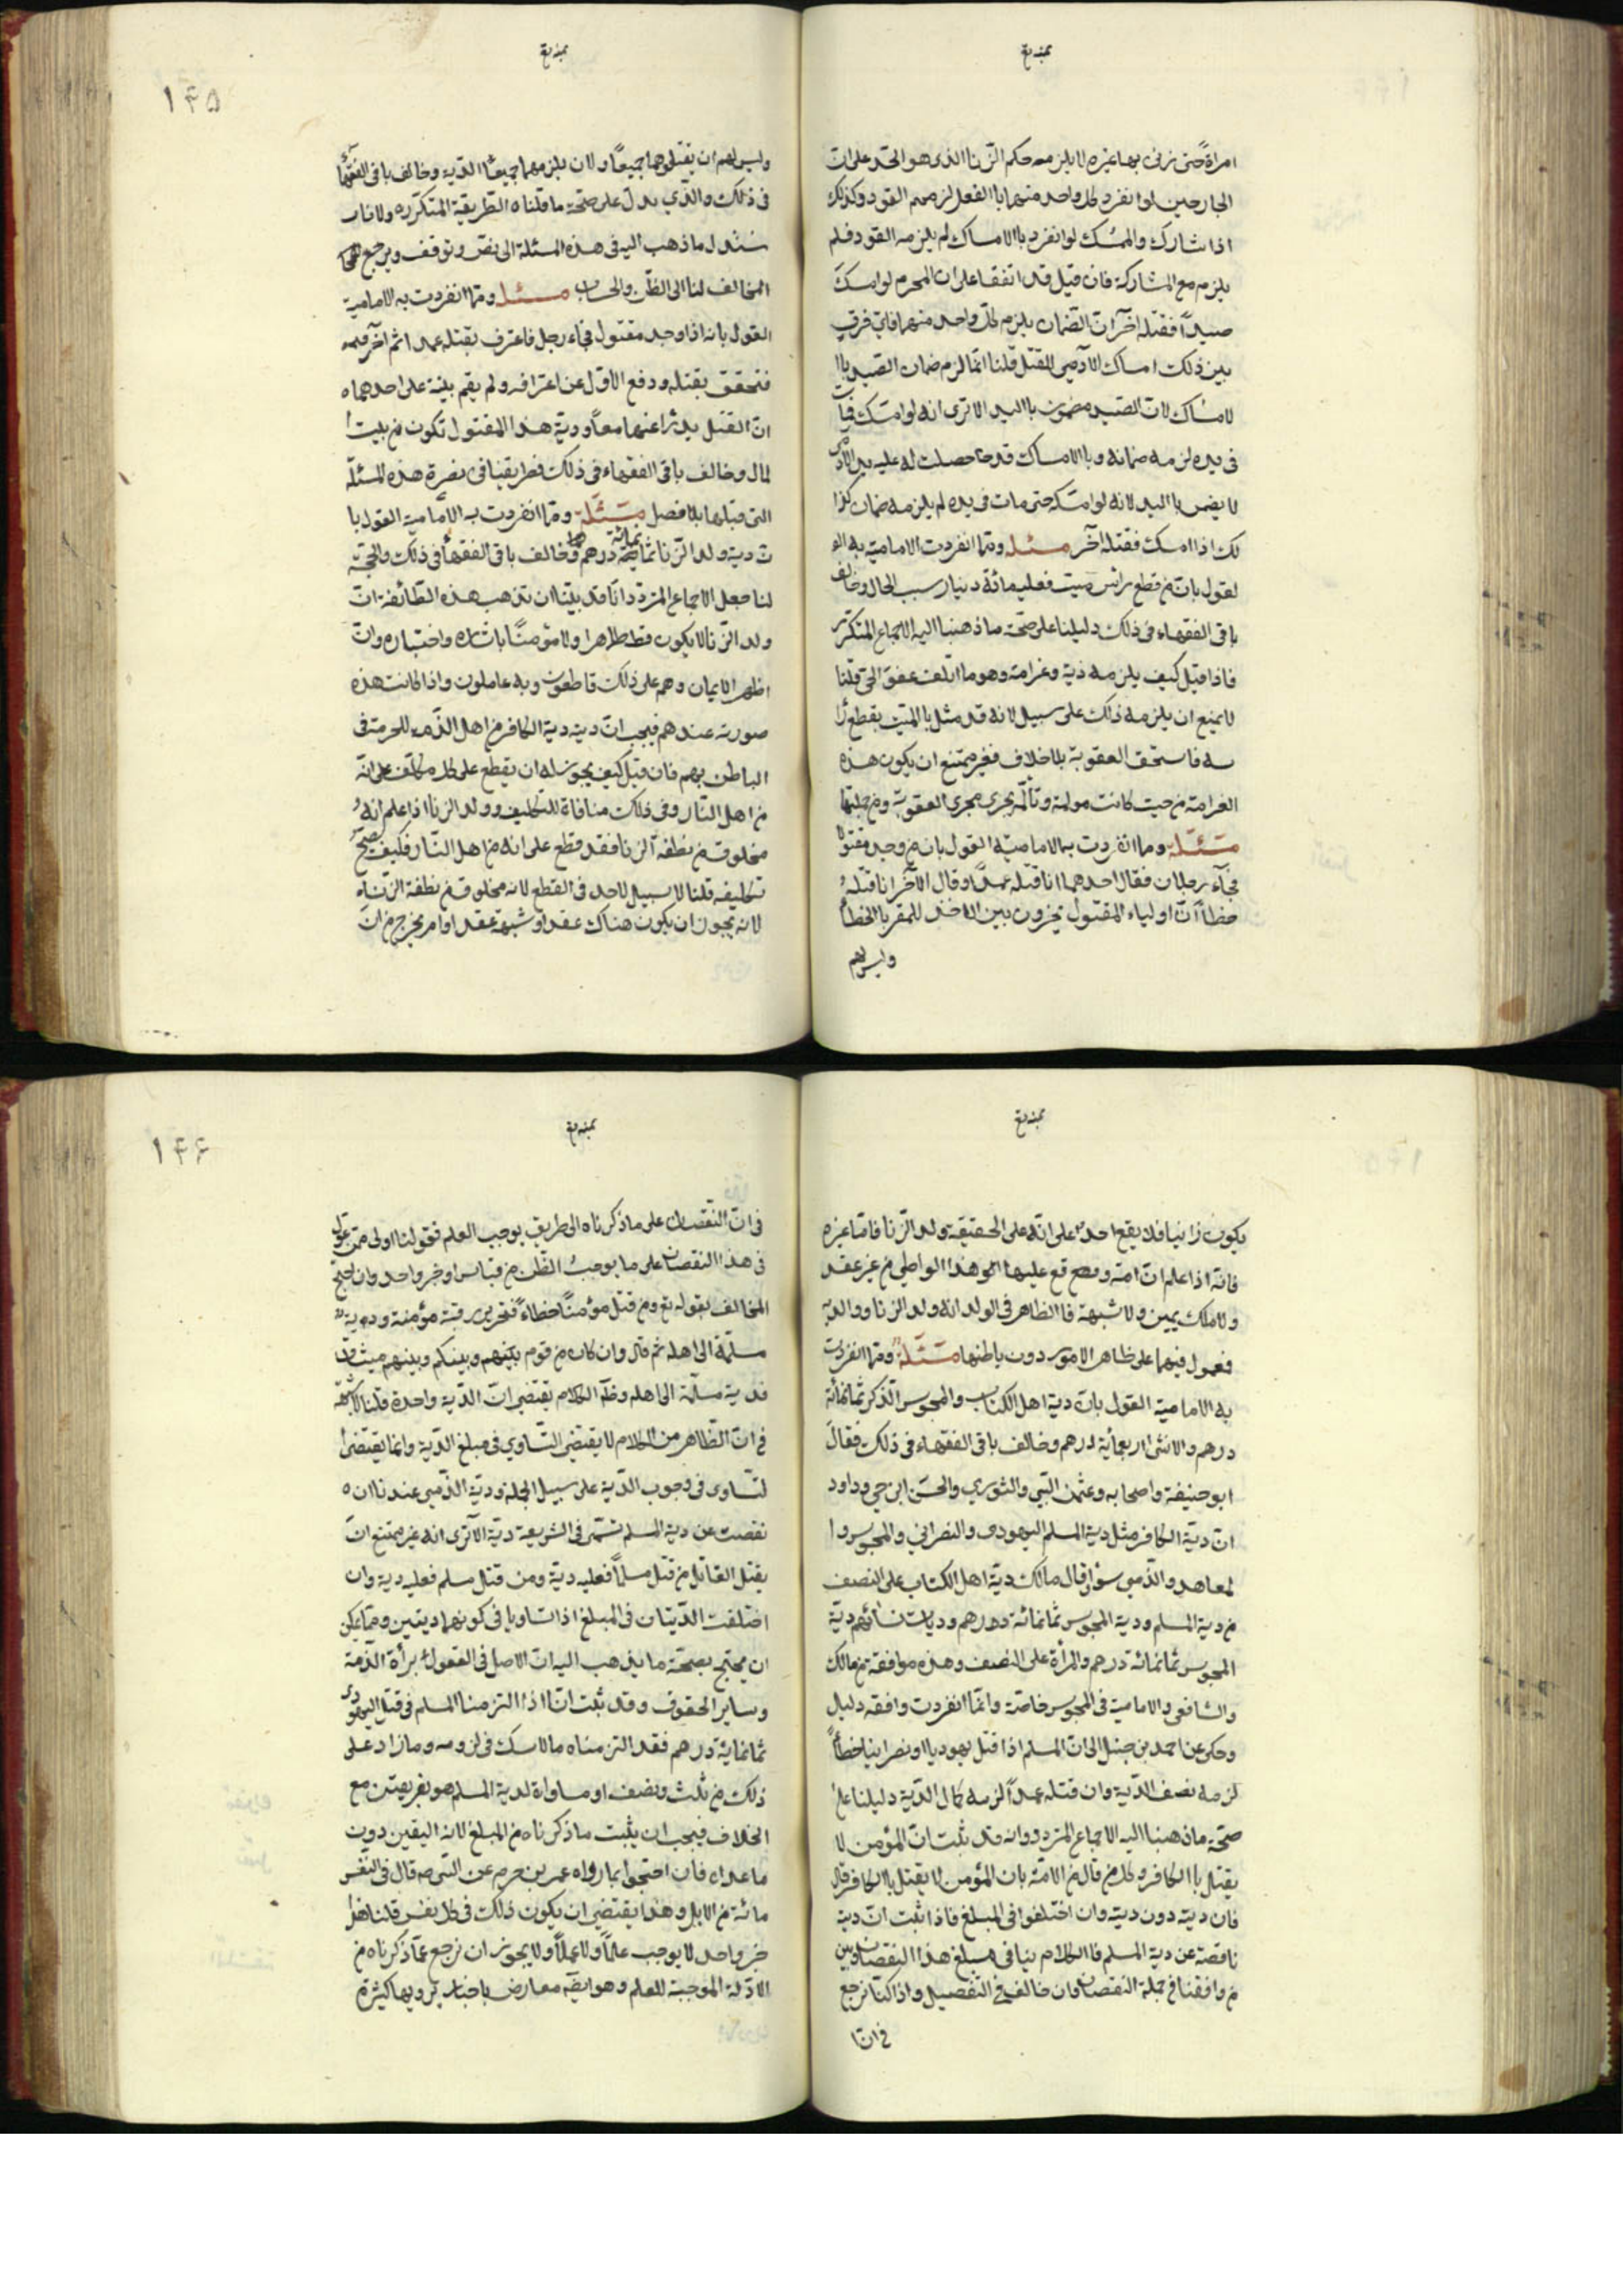 امراة حتى زنى بها غيره لا يلزمه حكم الزنا الذى هو الحد على ان
الجارحين لو انفرد كل واحد منهما باالفعل لزمهم القود وكذلك
اذا تشارك والممسك لو انفرد باالامساك لم يلزمه القود فلم
يلزم مع المشاركة فان قيل قد اتفقنا على ان المحرم لو امسك
صيداً فقتله آخر ان الضمان يلزم كل واحد منهما فاى فرق
بين ذلك امساك الآدمي للقتل قلنا انما لزم ضمان الصيد باا
لامساك لان الصيد مضمون باليد الا ترى انه لو امسك فمات
فى يده لزمه ضمانه و باالامساك قد حصلت له عليه يد الآدمى
لا يضمن باليد لانه لو امسكه حتى مات فى يده لم يلزمه ضمان كذا
لك اذا امسك فقتله آخر مسئلة ومما انفردت الامامية به ا
لقول بان من قطع راس ميت فعليه مائة دينار سبب الحال وخالف
باقى الفقهاء فى ذلك دليلنا على صحة ماذهبنا اليه الاجماع المتكرر
فاذا قيل كيف يلزمه دية وغرامة وهو ما اتلف عفو الحى قلنا
لا يمنع ان يلزمه ذلك على سبيل لانه قد مثل باالميت بقطع را
سه فاستحق العقوبة بلا خلاف فغير ممتنع ان يكون هذه
الغرامة من حيث كانت مولمة وتألمه يجرى مجرى العقوبة ومن جملتها
مسئلة ومما انفردت به الامامية القول بان من وجد مقتولا
فجاء رجلان فقال احدهما انا قتلته عمداً وقال الآخر انا قتلته
خطأ ان اولياء المقتول مخيرون بين الاخذ للمقر باالخطأ
وليس لهم
١۴۵
وليس لهم ان يقتلوهما جميعاً ولا ان يلزمهما جميعا الدية وخالف باقى الفقهاء
فى ذلك والذي يدل على صحة ما قلناه الطريقة المتكرره ولانا
نسند ل ماذهب اليه فى هذه المسئلة الى نص وتوقف ويرجع
المخالف لنا الى الظن والحسبان مسئلة ومما انفردت به الامامية
القول بانه اذا وجد مقتول فجاء رجل فاعترف بقتله عمدا ثم آخر
فتحقق بقتله ودفع الاول عن اعترافه ولم يقم بينة على احدهما
ان القتل يدرأ عنهما معاً ودية هذا المقتول تكون من بيت ا
لمال وخالف باقى الفقهاء فى ذلك فطريقنا فى نصرة هذه المسئلة
التى قبلها بلا فصل مسئلة ومما انفردت به الامامية القول با
ن دية ولد الزنا ثمانمائة درهم وخالف باقى الفقهاء فى ذلك والحجة
لنا بعد الاجماع المتردد انا قد بينا ان تذهب هذه الطائفة ان
ولد الزنا لا يكون قط طاهرا ولا مؤمناً بايثاره واختياره وان
اظهر الايمان وهم على ذلك قاطعون وبه عاملون واذا كانت هذه
صورته عندهم فيجب ان ديته دية الكافر من اهل الذمة للحرمة فى
الباطن بهم فان قيل كيف يجوز له ان يقطع على كل مكلف على انه
من اهل النار وفى ذلك منافاة للتكليف وولد الزنا اذا علم انه
مخلوق من نطفة الزنا فقد قطع على انه من اهل النار فكيف يصح
تكليفه قلنا لا سبيل لاحد فى القطع لانه مخلوق من نطفة الزناه
لانه يجوز ان يكون هناك عقد او شبهة عقد او امر يخرج من ان
يكون زانيا فلا يقع احد على انه على الحقيقة ولد الزنا فاما غيره
فانه اذا علم ان امه وقع عليها هذا الواطي من غير عقد
ولا ملك يمين ولا شبهة فاالظاهر فى الولد انه ولد الزنا والدية
فعمول فيها على ظاهر الامور دون باطنها مسئلة ومما انفردت
به الامامية القول بان دية اهل الكتاب والمجوس الذكر ثمانمائة
درهم والانثى اربعمائة درهم وخالف باقى الفقهاء فى ذلك فقال
ابو حنيفة واصحابه وعثمن البتي والثوري والحسن ابن حي وداود
ان دية الكافر مثل دية المسلم اليهودى والنصراني والمجوس وا
لمعاهد والذمي سواء وقال مالك دية اهل الكتاب على النصف
من دية المسلم ودية المجوس ثمانمائة درهم وديات نسائهم دية
المجوس ثمانمائة درهم والمرأة على النصف وهذه موافقة من مالك
والشافعى والامامية فى المجوس خاصة وانما انفردت وافقه دليل
وحكى عن احمد بن حنبل الى ان المسلم اذا قتل يهوديا او نصرانيا خطأً
لزمه نصف الدية وان قتله عمداً لزمه كمال الدية دليلنا على
صحة ماذهبنا اليه الاجماع المتردد وانه قد ثبت ان المؤمن لا
يقتل باالكافر وكل من قال من الامة بان المؤمن لا يقتل باالكافر قال
فان ديته دون دية وان اختلفوا فى المبلغ فاذا ثبت ان دية
ناقصة عن دية المسلم فاالكلام بيننا فى مبلغ هذا النقصان وبين
من وافقنا فى جملة النقصان وان خالف فى التفصيل واذا كنا نرجع
فى انا
١۴۶
فى ان النقصان على ما ذكرناه الى طريق يوجب العلم فقولنا اولى ممن عول
فى هذا النقصان على ما يوجب الظن من قياس او خبر واحد وان احتج
المخالف بقوله تع ومن قتل مؤمناً خطاء فتحرير رقبة مؤمنة ودية
مسلمة الى اهله ثم قال وان كان من قوم بينهم وبينكم وبينهم ميثاق
فدية مسلمة الى اهله وظاهر الكلام يقتضي ان الدية واحدة قلنا لا شبهة
فى ان الظاهر من الكلام لا يقتضى التساوي فى مبلغ الدية وانما يقتضى ا
لتساوى فى وجوب الدية على سبيل الجملة ودية الذمي عندنا ان
نقصت عن دية المسلم تسمى فى الشريعة دية الا ترى انه غير ممتنع ان
يقتل القاتل من قتل مسلماً فعليه دية ومن قتل مسلم فعليه دية وان
اختلفت الديتان فى المبلغ اذا تساويا فى كونهما ديتين ومما يمكن
ان يحتج بصحة ما يذهب اليه ان الاصل فى العقول برأة الذمة
وساير الحقوق وقد ثبت انا اذا التزمنا المسلم فى قتل اليهودى
ثمانمائة درهم فقد التزمناه مالا شك فى لزومه وما زاد على
ذلك من ثلث ونصف او مساواة لدية المسلم هو بغير يقين مع
الخلاف فيجب ان يثبت ما ذكرناه من المبلغ لانه اليقين دون
ما عداه فان احتجوا بما رواه عمر بن حزم عن النبى ص قال فى النفس
مائة من الابل وهذا يقتضى ان يكون ذلك فى كل نفس قلنا هذا
خبر واحد لا يوجب علماً ولا عملاً ولا يجوز ان نرجع عما ذكرناه من
الادلة الموجبة للعلم وهو ايضا معارض باخبار يرويها كثيرة